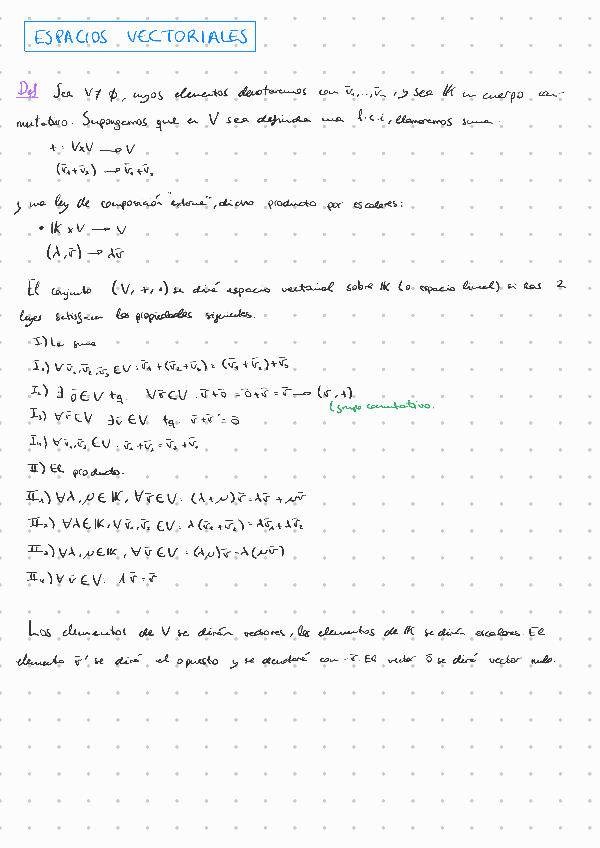 ESPACIOS VECTORIALES
Def Sea V≠∅, cuyos elementos denotaremos con v̄₁,...,v̄ₙ, y sea IK un cuerpo con-
mutativo. Supongamos que en V sea definida una l.c.i, llamaremos suma:
+: VxV → V
(v̄₁+v̄₂) → v̄₁+v̄₂
y una ley de composición "externa", dicho producto por escalares:
• IK x V → V
(λ,v̄) → λv̄
El conjunto (V,+,•) se dirá espacio vectorial sobre IK (o espacio lineal) si las 2
leyes satisfacen las propiedades siguientes.
I) La suma
I₁) ∀ v̄₁,v̄₂,v̄₃ ∈ V: v̄₁+(v̄₂+v̄₃) = (v̄₁+v̄₂)+v̄₃
I₂) ∃ ō ∈ V tq. ∀v̄ ∈ V. v̄+ō = ō+v̄ = v̄ → (v,+)
(grupo conmutativo.
I₃) ∀v̄ ∈ V ∃v̄' ∈ V tq. v̄+v̄' = ō
I₄) ∀v̄₁,v̄₂ ∈ V: v̄₁+v̄₂ = v̄₂+v̄₁
II) El producto.
II₁) ∀λ,μ ∈ IK, ∀v̄ ∈ V: (λ+μ)v̄ = λv̄ + μv̄
II₂) ∀λ ∈ IK, ∀v̄₁,v̄₂ ∈ V: λ(v̄₁+v̄₂) = λv̄₁+λv̄₂
II₃) ∀λ,μ ∈ IK, ∀v̄ ∈ V: (λμ)v̄ = λ(μv̄)
II₄) ∀v̄ ∈ V: 1v̄ = v̄
Los elementos de V se dirán vectores, los elementos de IK se dirán escalares. El
elemento v̄' se dirá el opuesto y se denotará con -v̄. El vector ō se dirá vector nulo.